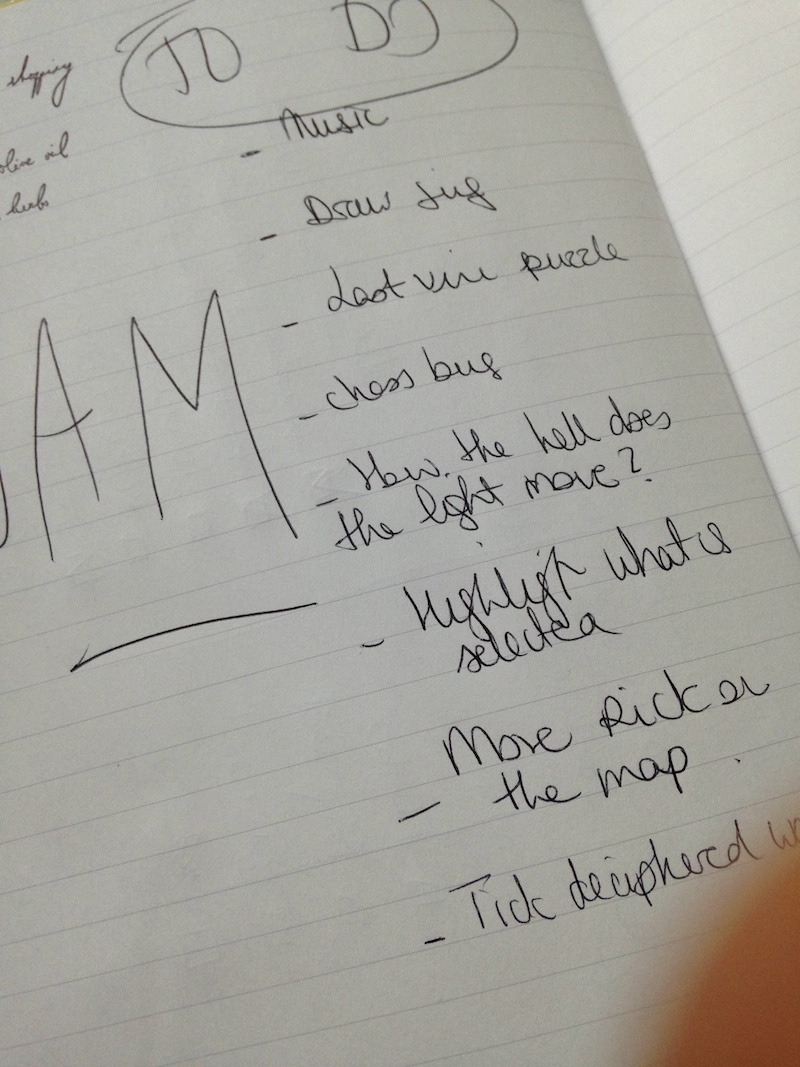 shopping
olive oil
herbs
TO DO
- Music
- Draw jug
- Last vine puzzle
- chess bug
- How the hell does
the light move?
- Highligt what is
selected
More Rick on
- the map.
- Tick deciphered
AM